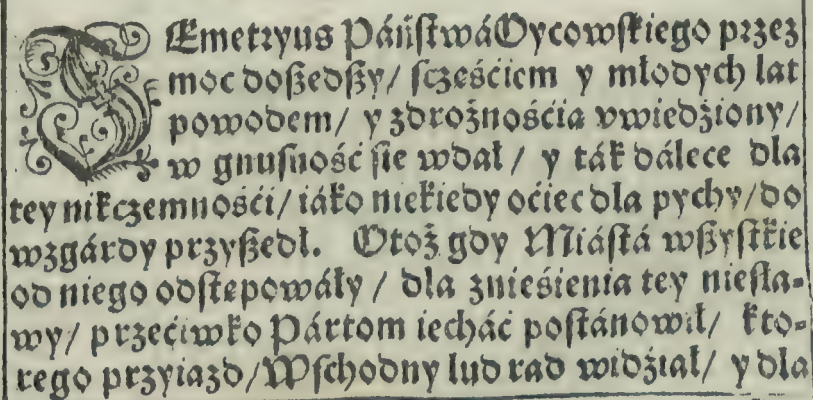 DEmetryus Páńſtwá Oycowſkiego przez
moc doßedßy/ ſczęśćiem y młodych lat
powodem/ y zdrożnośćia vwiedźiony/
w gnuſność ſie wdał / y ták dálece dla
tey nikczemnośći/ iáko niekiedy oćiec dla pychy/ do
wzgárdy przyßedł. Otoż gdy Miáſtá wßyſtkie
od niego odſtępowáły / dla znieśienia tey nieſła-
wy/ przećiwko Pártom iecháć poſtánowił/ kto-
rego przyiazd/ Wſchodny lud rad widźiał/ y dla